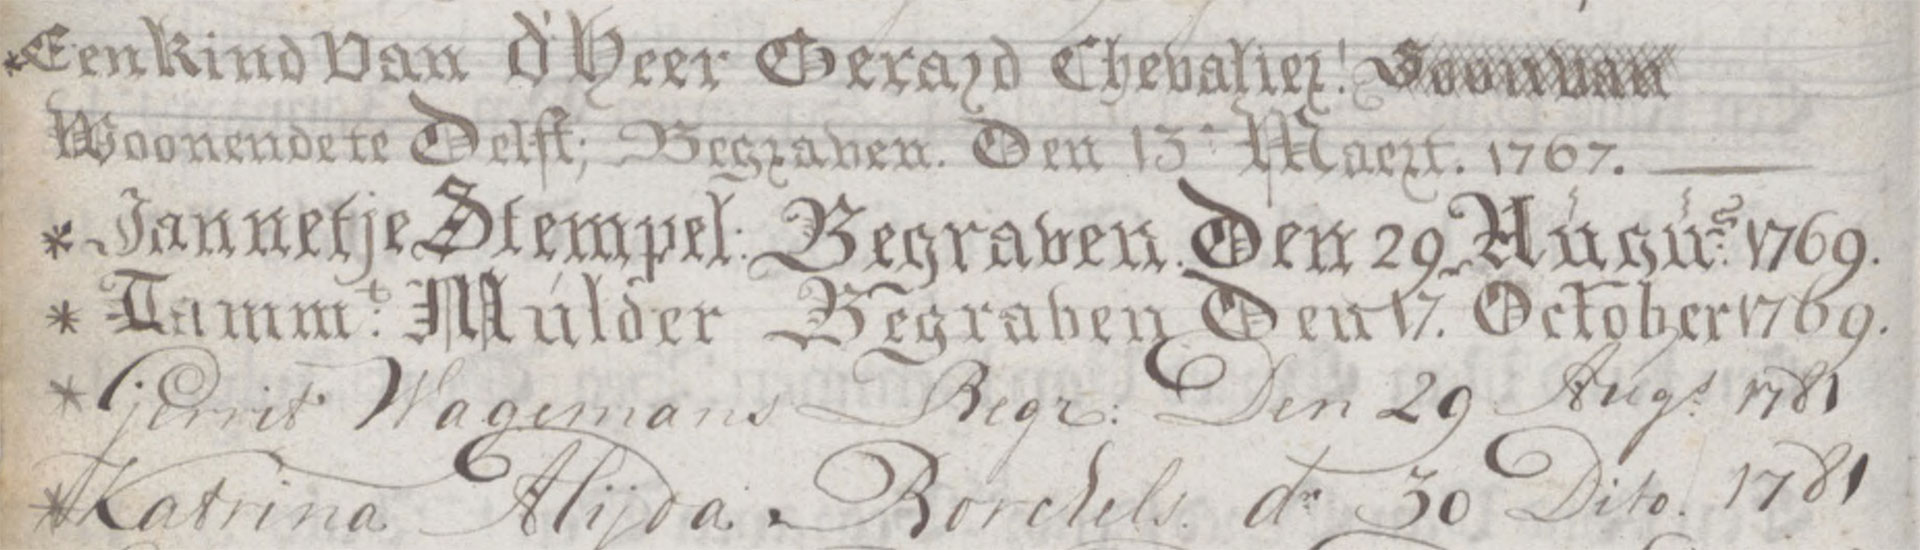 * Een Kind Van d'Heer Gerard Chevalier. Soon van
Woonende te Delft; Begraven. Den 13 Maert. 1767.
* Jannetje Stempel. Begraven. Den 29 Augus: 1769.
* Tamm:t Mulder Begraven Den 17. October 1769.
* Gerrit Wagemans Begr: Den 29 Augs. 1781
* Katrina Alijda Borchels. dr 30 Dito. 1781